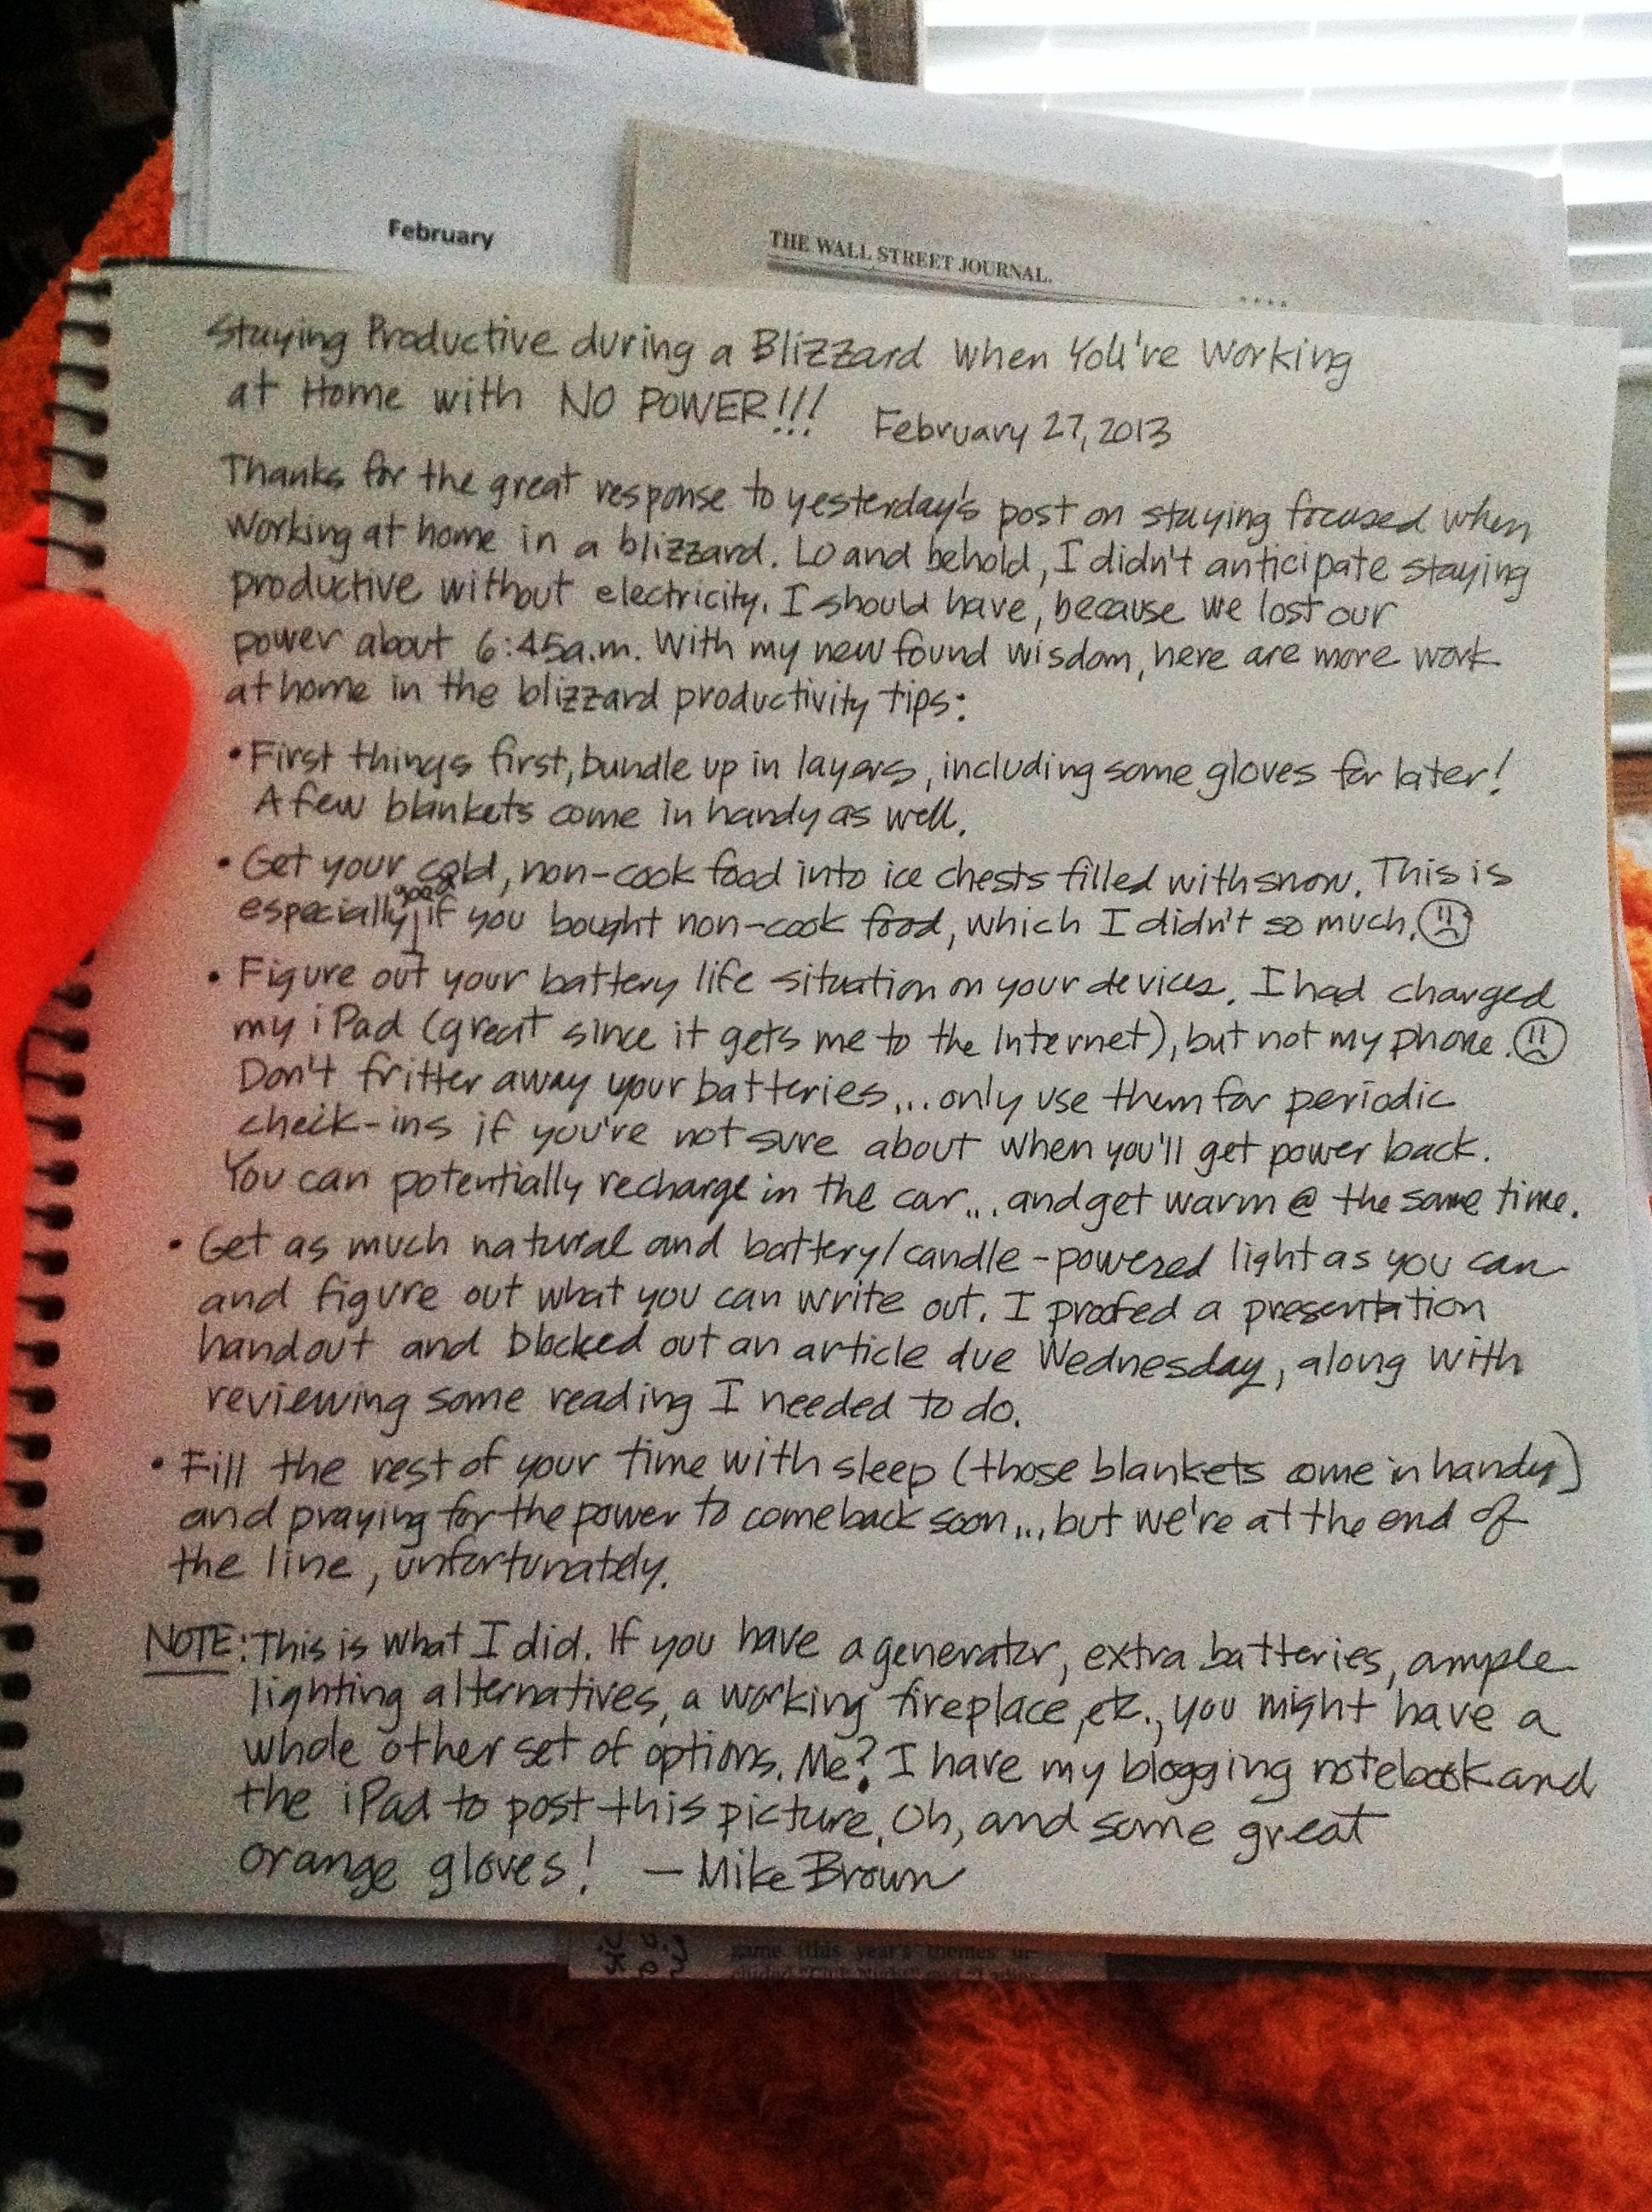 February
THE WALL STREET JOURNAL.
Staying Productive during a Blizzard When You're Working
at Home with NO POWER!!! February 27, 2013
Thanks for the great response to yesterday's post on staying focused when
working at home in a blizzard. Lo and behold, I didn't anticipate staying
productive without electricity. I should have, because we lost our
power about 6:45a.m. With my new found wisdom, here are more work
at home in the blizzard productivity tips:
• First things first, bundle up in layers, including some gloves for later!
A few blankets come in handy as well.
• Get your cold, non-cook food into ice chests filled with snow. This is
especially good if you bought non-cook food, which I didn't so much. ☹
• Figure out your battery life situation on your devices. I had charged
my iPad (great since it gets me to the Internet), but not my phone. ☹
Don't fritter away your batteries... only use them for periodic
check-ins if you're not sure about when you'll get power back.
You can potentially recharge in the car... and get warm @ the same time.
• Get as much natural and battery/candle-powered light as you can
and figure out what you can write out. I proofed a presentation
handout and blocked out an article due Wednesday, along with
reviewing some reading I needed to do.
• Fill the rest of your time with sleep (those blankets come in handy)
and praying for the power to come back soon... but we're at the end of
the line, unfortunately.
NOTE: This is what I did. If you have a generator, extra batteries, ample
lighting alternatives, a working fireplace, etc., you might have a
whole other set of options. Me? I have my blogging notebook and
the iPad to post this picture. Oh, and some great
orange gloves! — Mike Brown
game (this year's themes in-